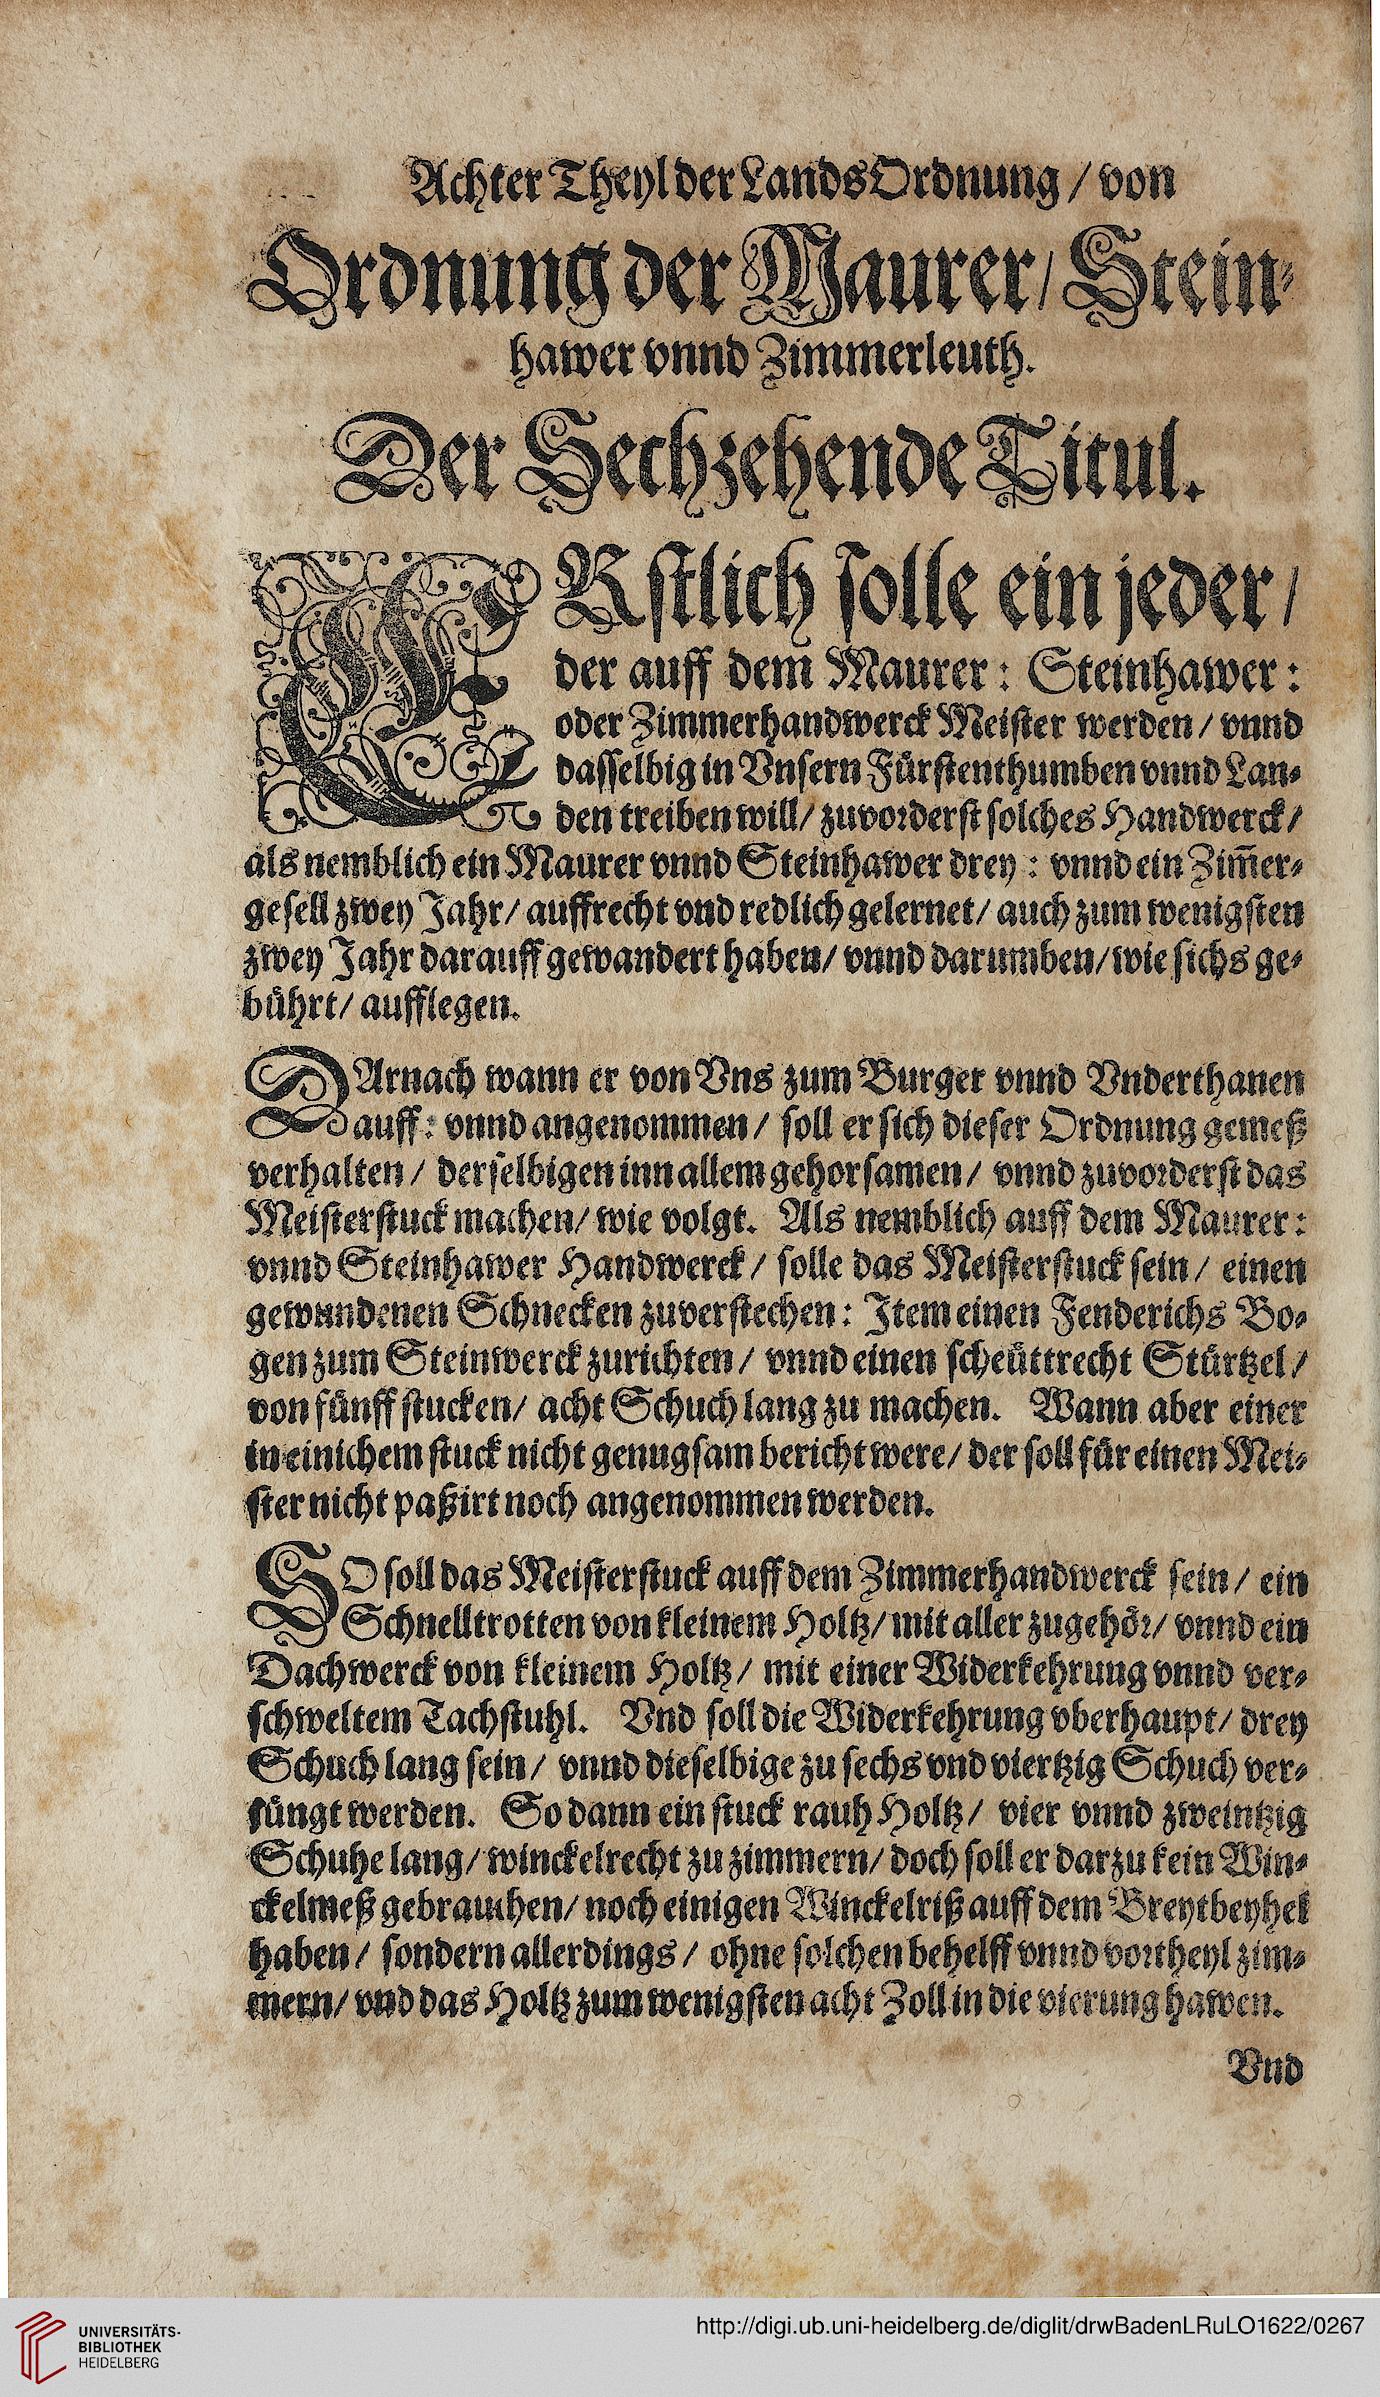 Achter Theyl der LandsOrdnung / von
Ordnung der Maurer / Stein⸗
hawer vnnd Zimmerleuth.
Der Sechzehende Titul.
ERstlich solle ein jeder /
der auff dem Maurer: Steinhawer:
oder Zimmerhandwerck Meister werden / vnnd
dasselbig in Vnsern Fürstenthumben vnnd Lan⸗
den treiben will / zuvorderst solches Handwerck /
als nemblich ein Maurer vnnd Steinhawer drey: vnnd ein Zim̃er⸗
gesell zwey Jahr / auffrecht vnd redlich gelernet / auch zum wenigsten
zwey Jahr darauff gewandert haben / vnnd darumben / wie sichs ge⸗
bührt / aufflegen.
DArnach wann er von Vns zum Burger vnnd Vnderthanen
auff: vnnd angenommen / soll er sich dieser Ordnung gemeß
verhalten / derselbigen inn allem gehorsamen / vnnd zuvorderst das
Meisterstuck machen / wie volgt. Als nemblich auff dem Maurer:
vnnd Steinhawer Handwerck / solle das Meisterstuck sein / einen
gewundenen Schnecken zuverstechen: Item einen Fenderichs Bo⸗
gen zum Steinwerck zurichten / vnnd einen scheüttrecht Stürtzel /
von fünff stucken / acht Schuch lang zu machen. Wann aber einer
in einichem stuck nicht genugsam bericht were / der soll für einen Mei⸗
ster nicht paßirt noch angenommen werden.
SO soll das Meisterstuck auff dem Zimmerhandwerck sein / ein
Schnelltrotten von kleinem Holtz / mit aller zugehör / vnnd ein
Dachwerck von kleinem Holtz / mit einer Widerkehrung vnnd ver⸗
schweltem Tachstuhl. Vnd soll die Widerkehrung vberhaupt / drey
Schuch lang sein / vnnd dieselbige zu sechs vnd viertzig Schuch ver⸗
jüngt werden. So dann ein stuck rauh Holtz / vier vnnd zweintzig
Schuhe lang / winckelrecht zu zimmern / doch soll er darzu kein Win⸗
ckelmeß gebrauchen / noch einigen Winckelriß auff dem Breytbeyhel
haben / sondern allerdings / ohne solchen behelff vnnd vortheyl zim⸗
mern / vnd das Holtz zum wenigsten acht Zoll in die vierung hawen.
Vnd
UNIVERSITÄTS-
BIBLIOTHEK
HEIDELBERG
http://digi.ub.uni-heidelberg.de/diglit/drwBadenLRuLO1622/0267